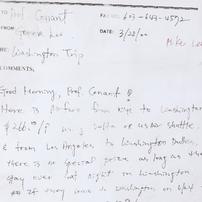 TO: Prof Conant
FAX NO: 603-643-4592
FROM: Lee
DATE: 3/28/00
Mike Lee
RE: Washington Trip
COMMENTS,
Good Morning, Prof Conant
Here is airfare from NYC to Washington
$ 260.00 / Delta or usair shuttle
& from Los Angeles to Washington Dulles,
there is no special price as long as they
stay over sat night in Washington
If they come to Washington on